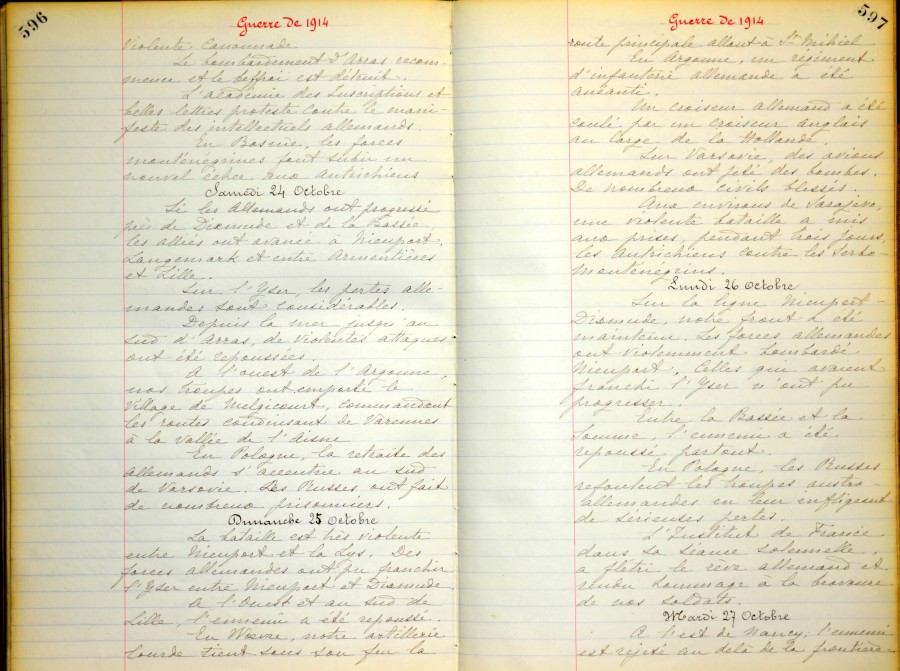 596
Guerre de 1914
violente canonnade
Le bombardement d'Arras recom-
mence et le beffroi est détruit.
L'académie des Inscriptions et
belles lettres proteste contre le mani-
feste des intellectuels allemands.
En Bosnie, les forces
monténégrines font subir un
nouvel échec aux Autrichiens
Samedi 24 Octobre
Si les Allemands ont progressé
près de Dixmude et de la Bassée,
les alliés ont avancé à Nieuport,
Langemark et entre Armentières
et Lille.
Sur l'Yser, les pertes alle-
mandes sont considérables.
Depuis la mer jusqu'au
sud d'Arras, de violentes attaques
ont été repoussées.
A l'ouest de l'Argonne,
nos troupes ont emporté le
village de Melzicourt, commandant
les routes conduisant de Varennes
à la vallée de l'Aisne
En Pologne, la retraite des
Allemands s'accentue au sud
de Varsovie. Les Russes ont fait
de nombreux prisonniers.
Dimanche 25 Octobre
La bataille est très violente
entre Nieuport et la Lys. Des
forces allemandes ont pu franchir
l'Yser entre Nieuport et Dixmude
A l'Ouest et au sud de
Lille, l'ennemi a été repoussé.
En Woevre, notre artillerie
lourde tient sous son feu la
597
Guerre de 1914
route principale allant à St Mihiel
En Argonne, un régiment
d'infanterie allemande a été
anéanti.
Un croiseur allemand a été
coulé par un croiseur anglais
au large de la Hollande.
Sur Varsovie, des avions
allemands ont jeté des bombes.
De nombreux civils blessés.
Aux environs de Sarajevo,
une violente bataille a mis
aux prises, pendant trois jours,
les Autrichiens contre les Serbo-
Monténégrins.
Lundi 26 Octobre
Sur la ligne Nieuport-
Dixmude, notre front a été
maintenu. Les forces allemandes
ont violemment bombardé
Nieuport. Celles qui avaient
franchi l'Yser n'ont pu
progresser.
Entre la Bassée et la
Somme, l'ennemi a été
repoussé partout.
En Pologne, les Russes
refoulent les troupes austro-
allemandes en leur infligeant
de sérieuses pertes.
L'Institut de France
dans sa séance solennelle,
a flétri le rêve allemand et
rendu hommage à la bravoure
de nos soldats.
Mardi 27 Octobre
A l'est de Nancy, l'ennemi
est rejeté au delà de la frontière.